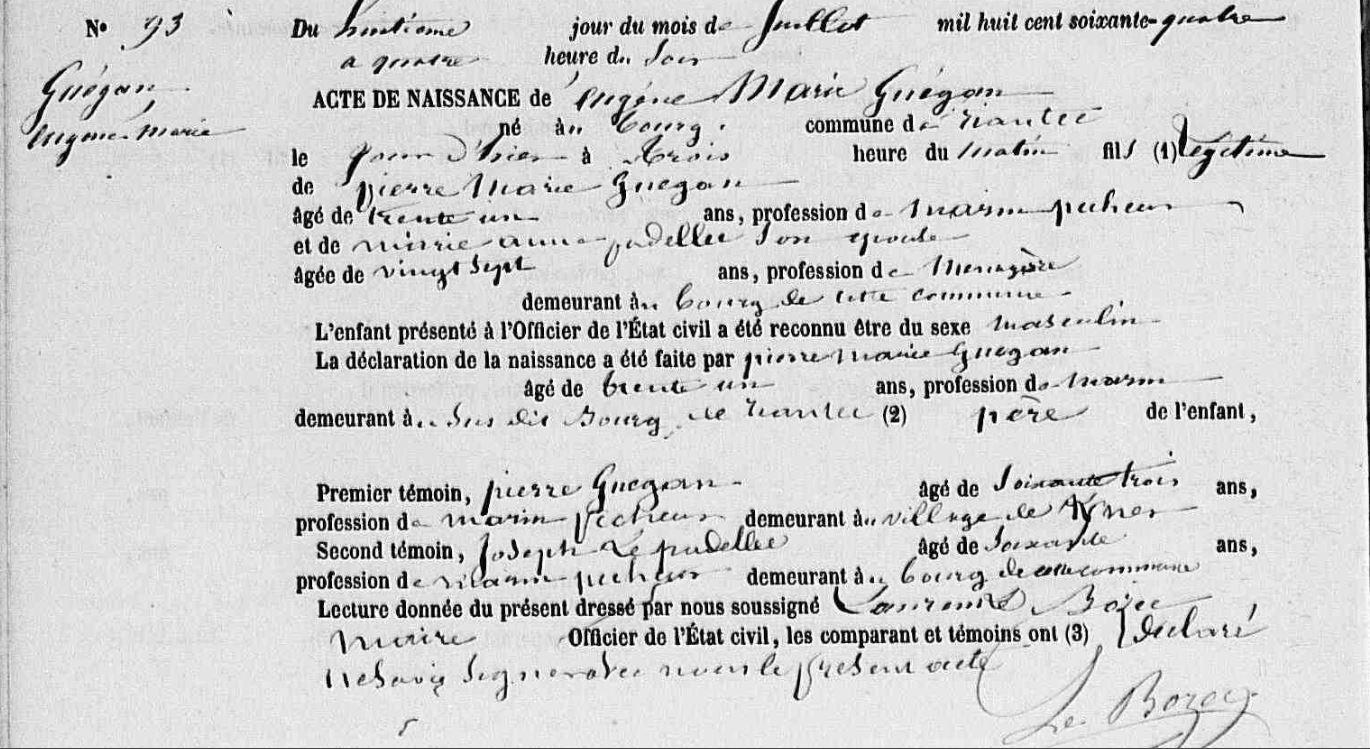 N° 93 Du huitième jour du mois de Juillet mil huit cent soixante-quatre
a quatre heure du Soir
Guégan,
Eugène Marie
ACTE DE NAISSANCE de Eugène Marie Guégan
né à bourg commune de
le jour d'hier à trois heure du matin fils (1) légitime
de pierre Marie Guégan
âgé de trente un ans, profession de marin pecheur
et de marie anne pudellec son epouse
âgée de vingt sept ans, profession de Menagère
demeurant à bourg de cette commune
L'enfant présenté à l'Officier de l'État civil a été reconnu être du sexe masculin
La déclaration de la naissance a été faite par pierre marie Guegan
âgé de trente un ans, profession de marin
demeurant à Sus dit Bourg de (2) père de l'enfant,
Premier témoin, pierre Guegan âgé de Soixante trois ans,
profession de marin pecheur demeurant à village de
Second témoin, Joseph Le pudellec âgé de Soixante ans,
profession de marin pecheur demeurant à bourg de cette commune
Lecture donnée du présent dressé par nous soussigné
Maire Officier de l'État civil, les comparant et témoins ont (3) déclaré
ne savoir signer avec nous le present acte
Le Bozec